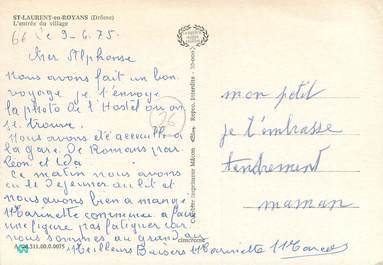 ST-LAURENT-en-ROYANS (Drôme)
L'entrée du village
le 9-6.75.
Cher Alphonse
Nous avons fait un bon
voyage je t'envoye
la photo de l'Hostel ou on
se trouve.
Nous avons été acceuilli a
la gare de Romans par
Léon et Ida
Ce matin nous avons
eu le déjeuner au lit et
nous avons bien a mangé
Marinette commence a faire
une figure pas fatiguer car
nous sommes au grand air
Meilleurs Baisers Marinette Marcel
26
mon petit
je t'embrasse
tendrement
maman
cimcrome